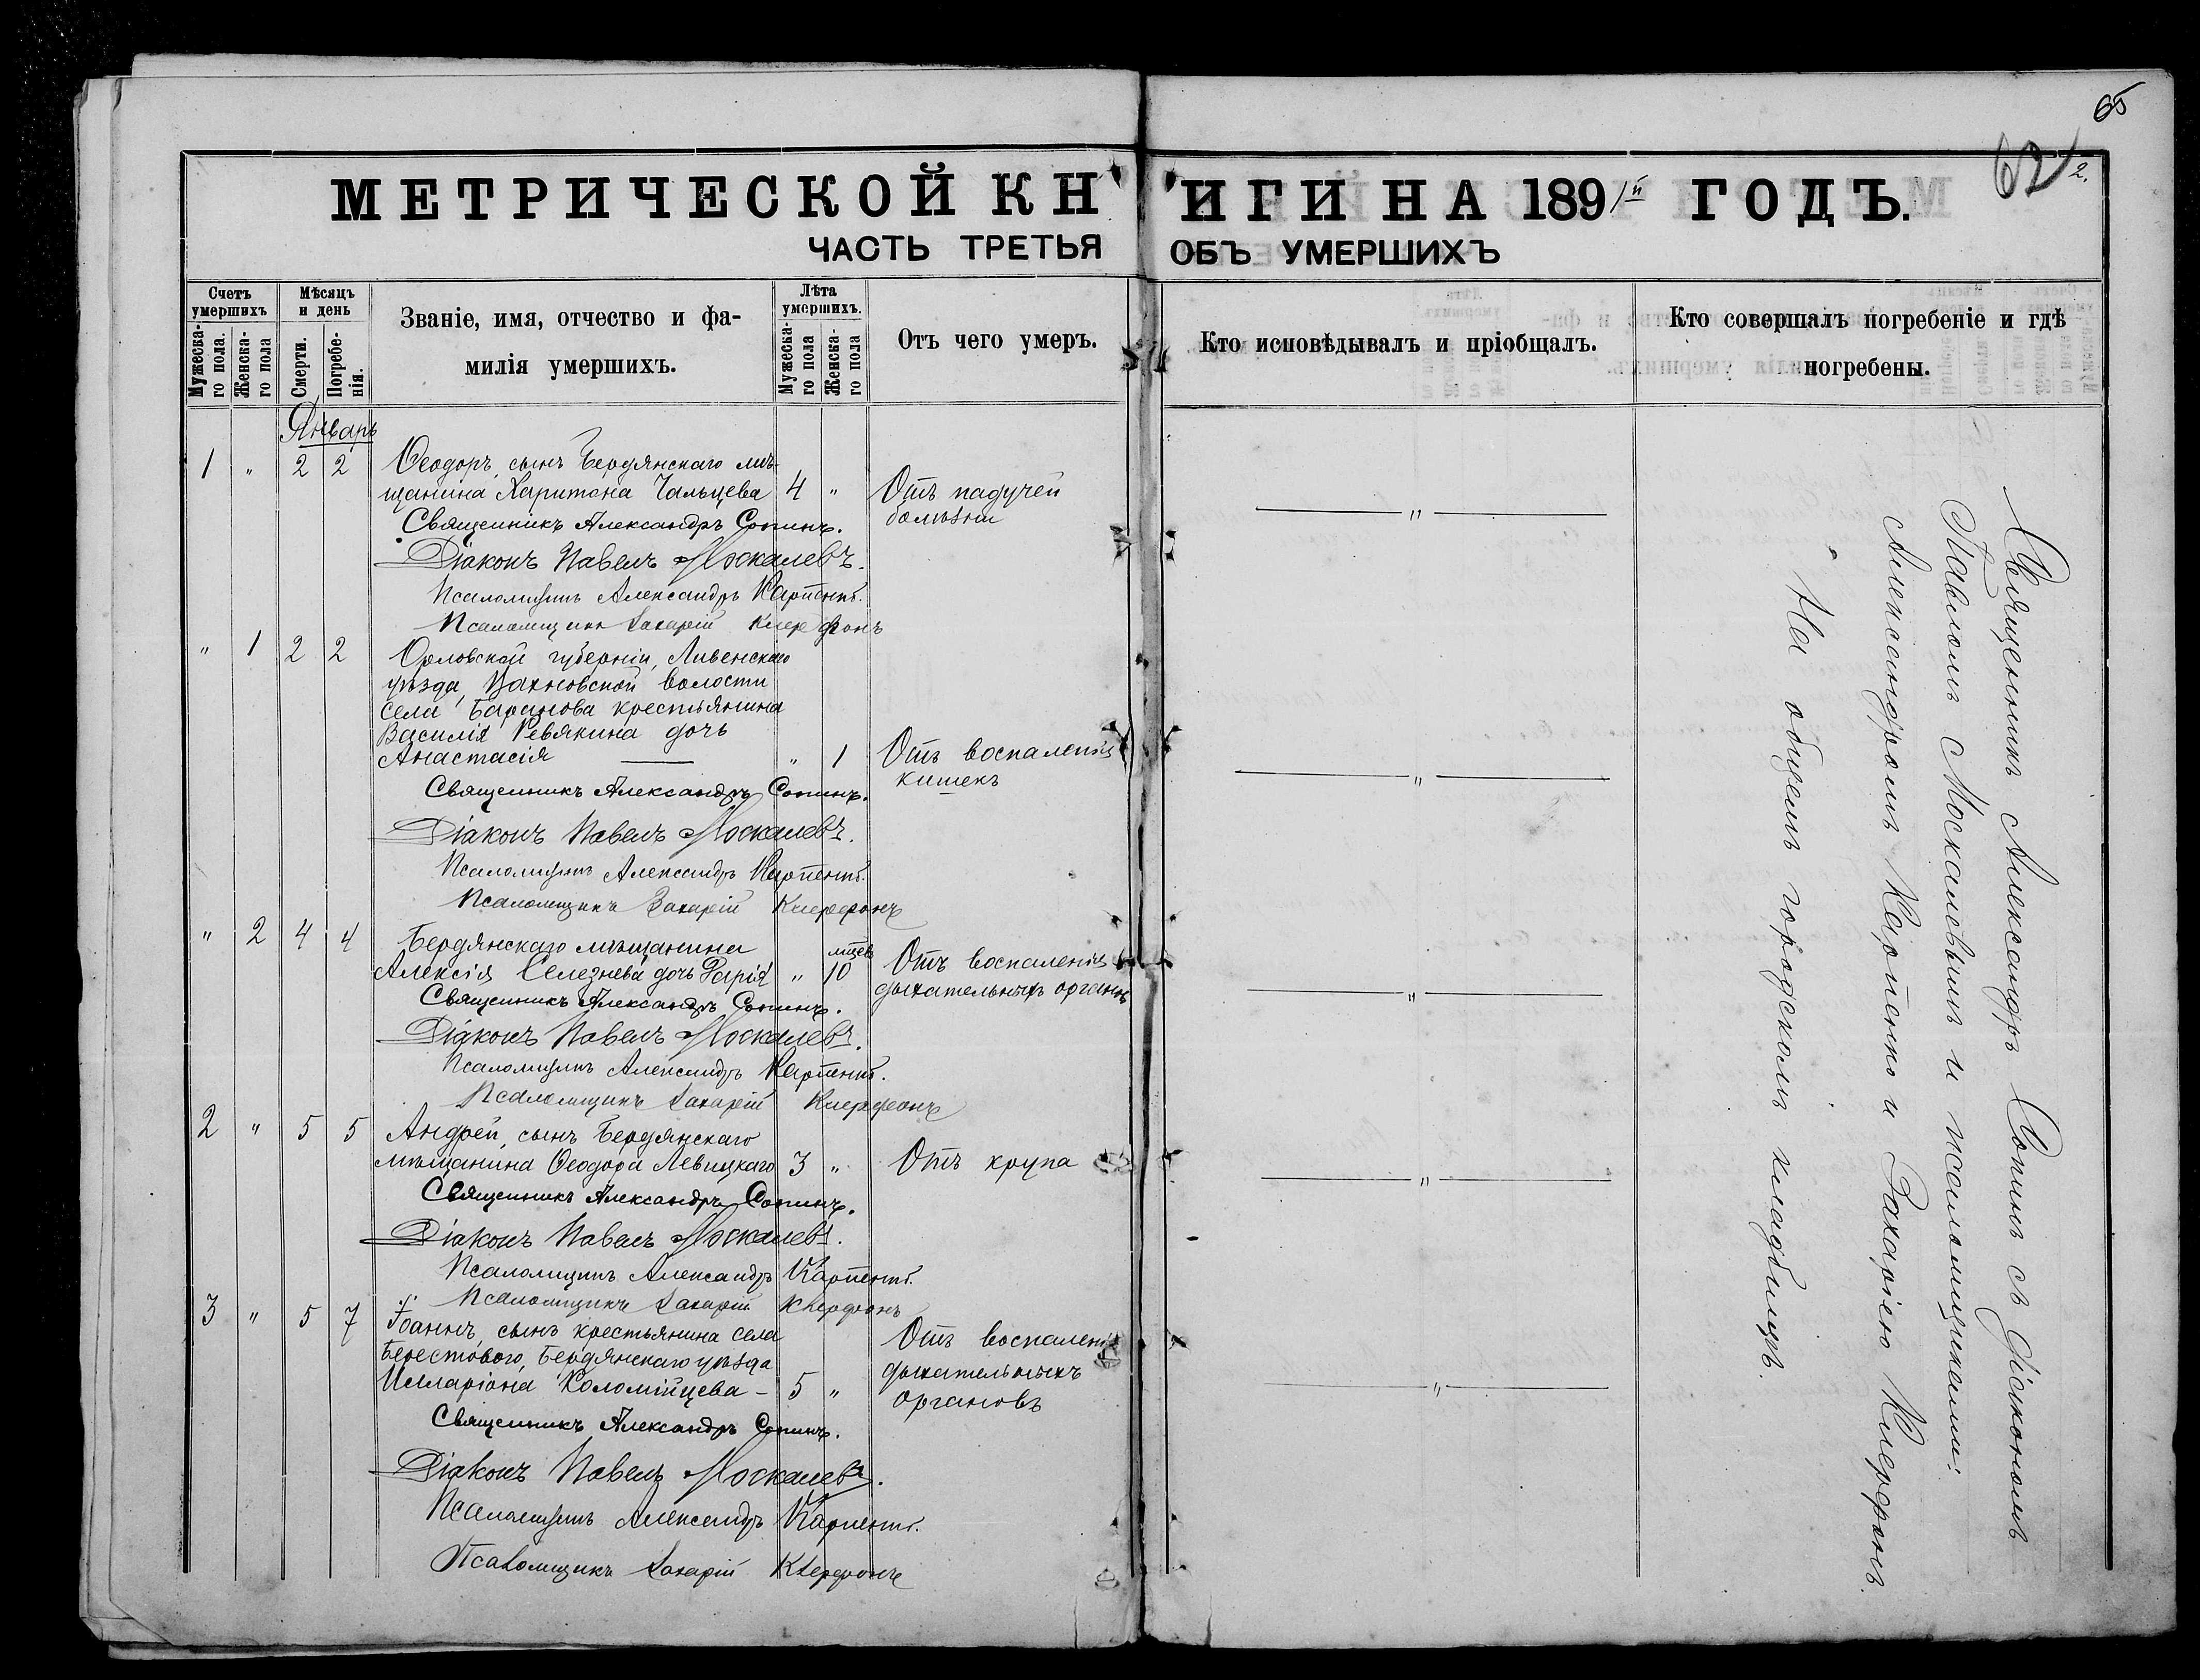 65
62 1/2.
МЕТРИЧЕСКОЙ КНИГИ НА 1891й ГОДЪ.
ЧАСТЬ ТРЕТЬЯ ОБЪ УМЕРШИХЪ
Счетъ умершихъ
Мужеска-го пола.
Женска-го пола
Мѣсяцъ и день
Смерти.
Погребе-нія.
Званіе, имя, отчество и фа-
милія умершихъ.
Лѣта умершихъ.
Мужеска-го пола
Женска-го пола
Отъ чего умеръ.
Кто исповѣдывалъ и пріобщалъ.
Кто совершалъ погребеніе и гдѣ
погребены.
Январь
1 " 2 2 Ѳеодоръ, сынъ Бердянскаго мѣ-
щанина Харитона Чальцева 4 " Отъ падучей
болѣзни
Священникъ Александръ Сопинъ.
Діаконъ Павелъ Москалевъ.
Псаломщикъ Александръ Карпенко.
Псаломщикъ Захарій Клерфонъ
" 1 2 2 Орловской губерніи, Ливенскаго
уѣзда, волости
села Баранова крестьянина
Василія Ревякина дочь
Анастасія " 1 Отъ воспаленія
кишекъ
Священникъ Александръ Сопинъ.
Діаконъ Павелъ Москалевъ.
Псаломщикъ Александръ Карпенко.
Псаломщикъ Захарій Клерфонъ
" 2 4 4 Бердянскаго мѣщанина
Алексія Селезнева дочь " мѣсяц. 10 Отъ воспаленія
дыхательныхъ органовъ
Священникъ Александръ Сопинъ.
Діаконъ Павелъ Москалевъ.
Псаломщикъ Александръ Карпенко.
Псаломщикъ Захарій Клерфонъ
2 " 5 5 Андрей, сынъ Бердянскаго
мѣщанина Ѳеодора Левицкаго 3 " Отъ крупа
Священникъ Александръ Сопинъ.
Діаконъ Павелъ Москалевъ.
Псаломщикъ Александръ Карпенко.
Псаломщикъ Захарій Клерфонъ
3 " 5 7 Іоаннъ, сынъ крестьянина села
Берестового, Бердянскаго уѣзда
Илларіона Коломійцева – 5 " Отъ воспаленія
дыхательныхъ
органовъ
Священникъ Александръ Сопинъ.
Діаконъ Павелъ Москалевъ.
Псаломщикъ Александръ Карпенко.
Псаломщикъ Захарій Клерфонъ
Священникъ Александръ Сопинъ съ діакономъ
Павломъ Москалевымъ и псаломщиками:
Александромъ Карпенко и Захаріею Клерфонъ.
На общемъ городскомъ кладбищѣ.